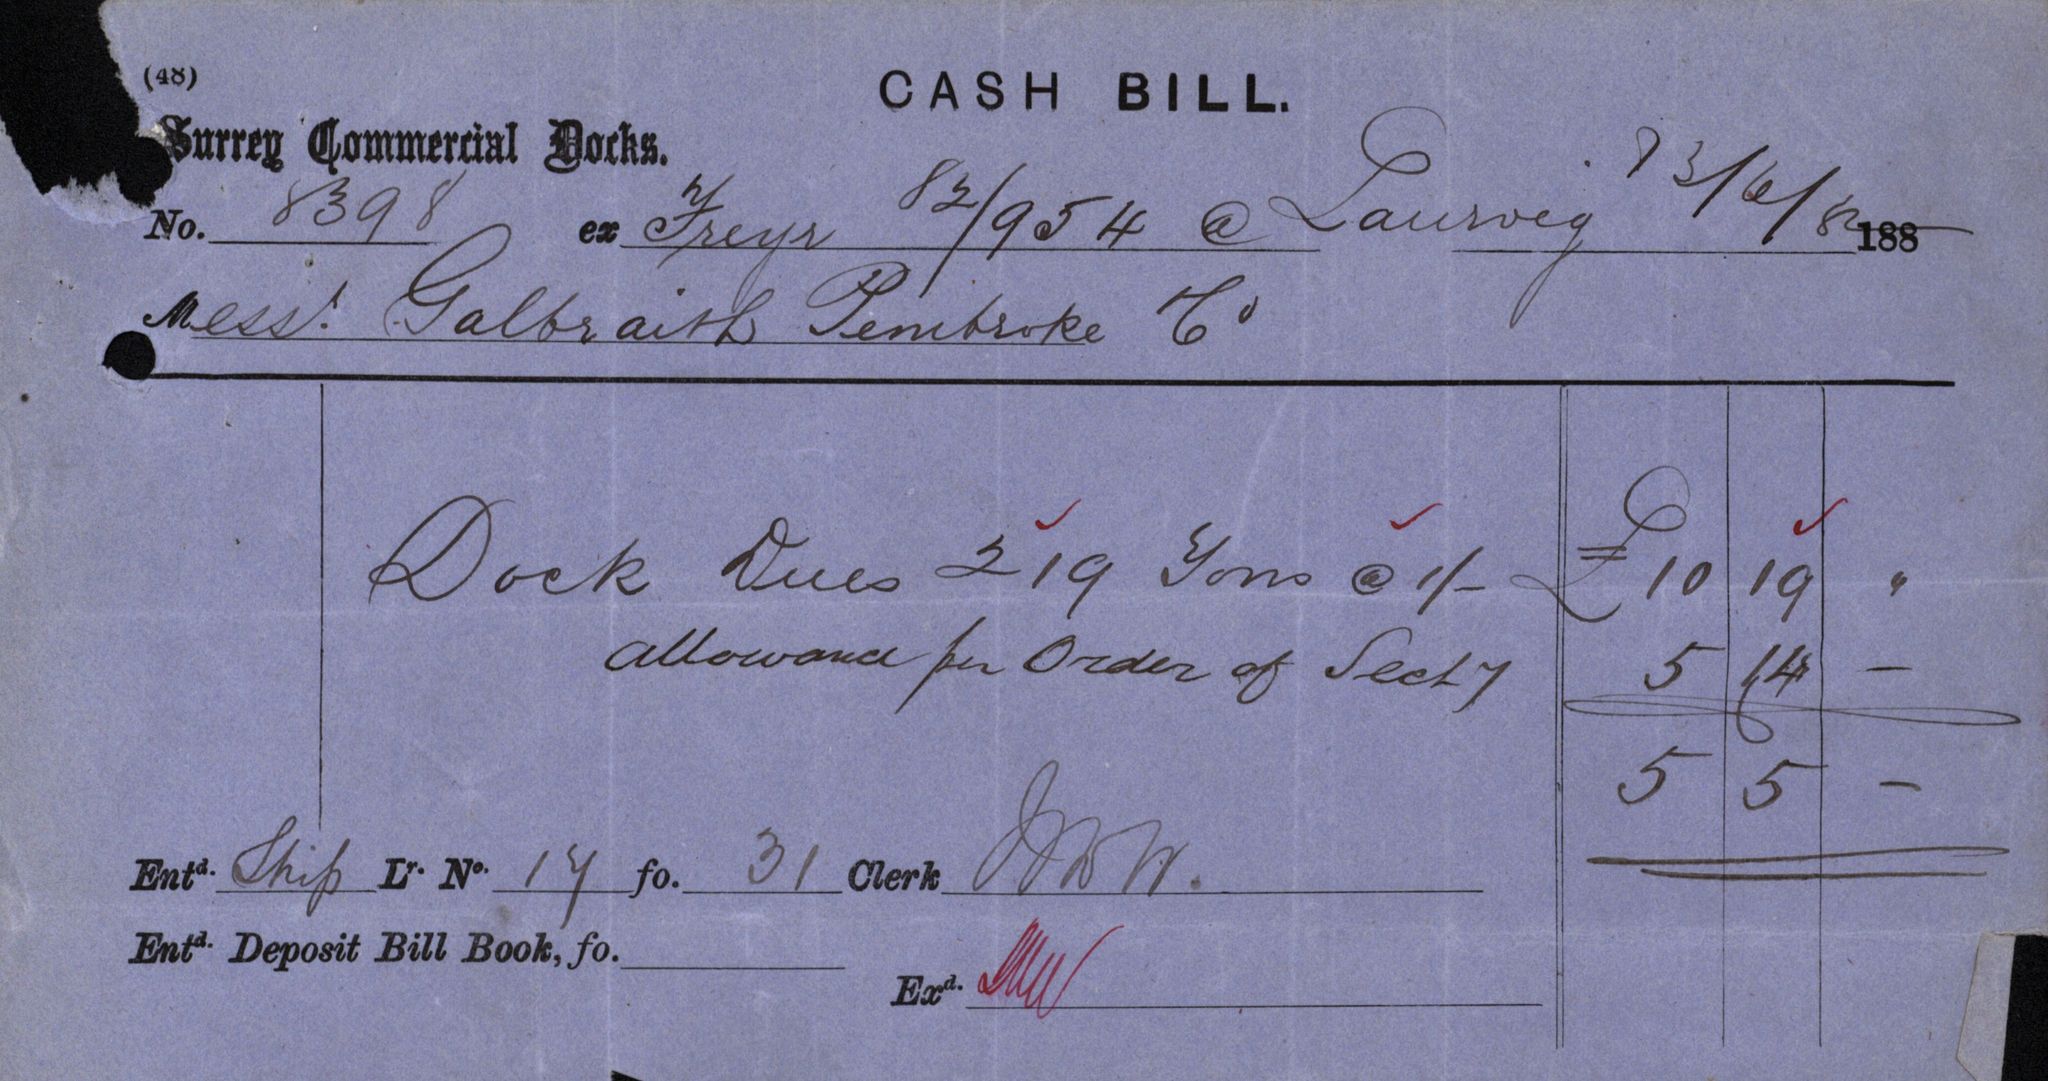 (48)
CASH BILL.
Surrey Commercial Docks.
No. 8398 ex Freyr 82/954 @ Laurvig 13/6/82 188
Messrs. Galbraith Pembroke & Co
Dock Dues 219 Tons @ 1/- £ 10 19 "
allowance per Order of Secty 5 14 -
5 5 -
Entd. Ship Lr. No. 17 fo. 31 Clerk
Entd. Deposit Bill Book, fo.
Exd.